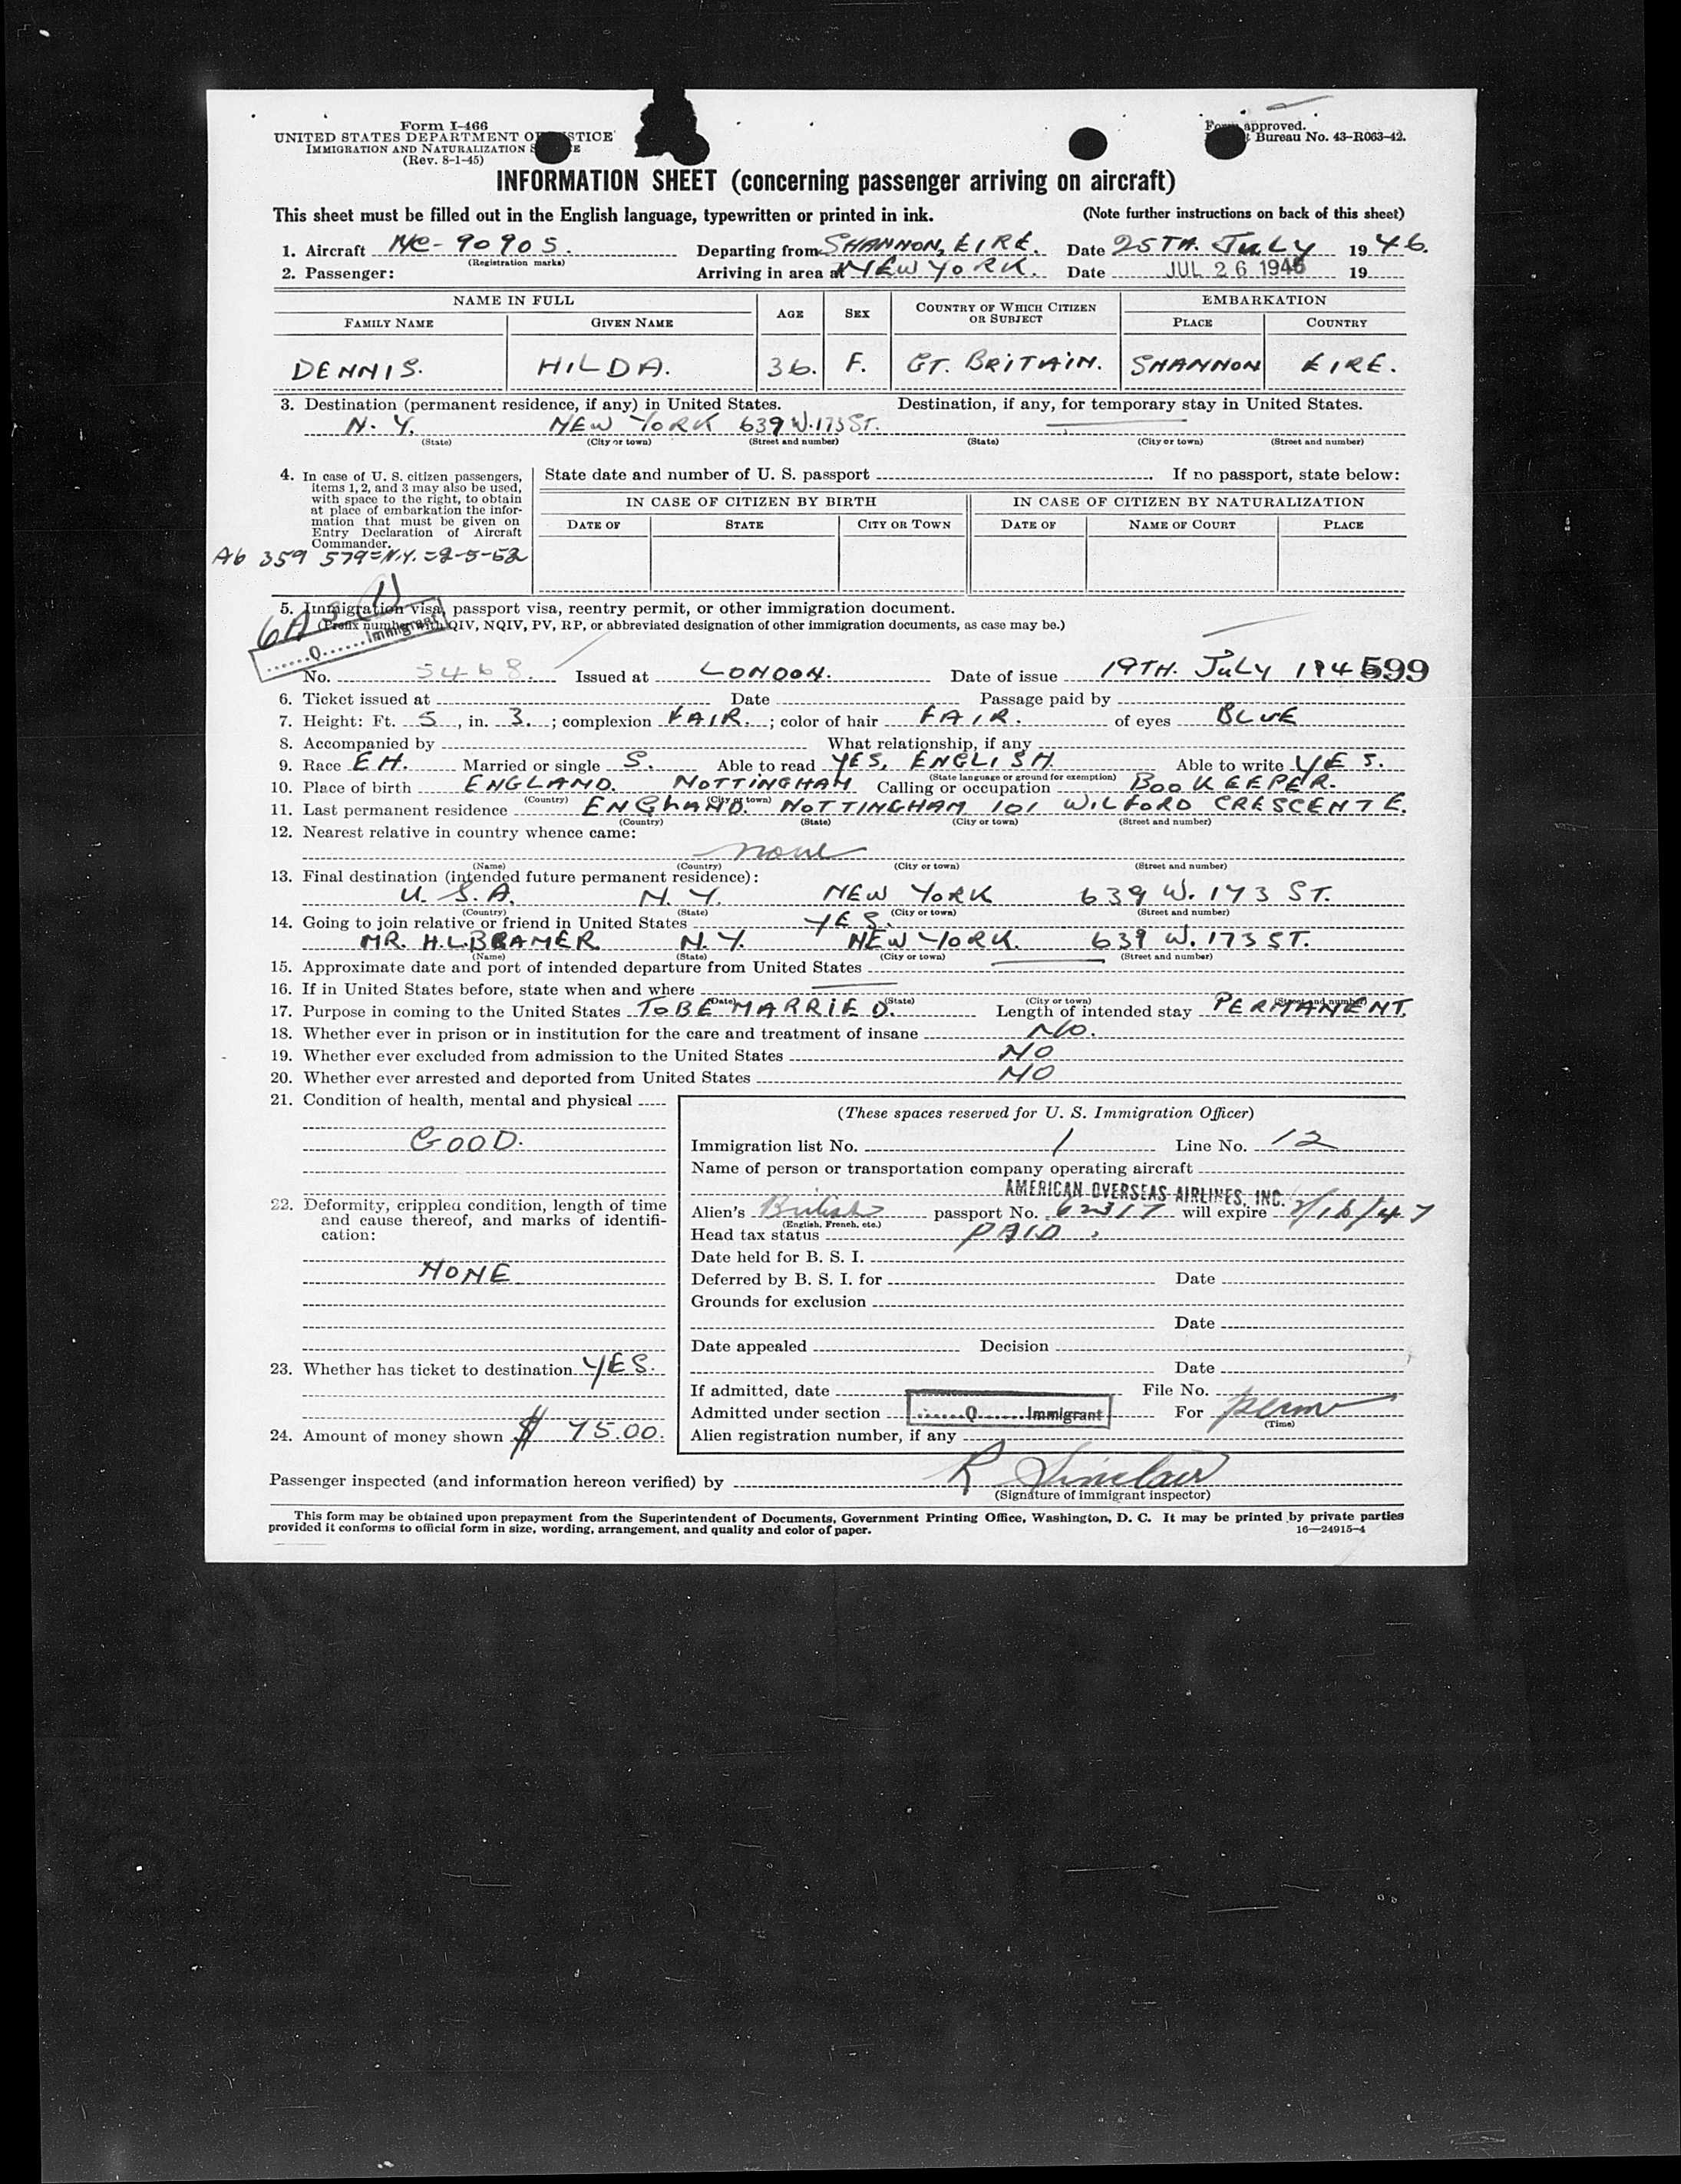 Form I-466
UNITED STATES DEPARTMENT OF JUSTICE
IMMIGRATION AND NATURALIZATION SERVICE
(Rev. 8-1-45)
Form approved.
Bureau No. 43-R063-42.
INFORMATION SHEET (concerning passenger arriving on aircraft)
This sheet must be filled out in the English language, typewritten or printed in ink. (Note further instructions on back of this sheet)
1. Aircraft NC-90905. Departing from SHANNON, EIRE. Date 25TH. JULY 1946.
(Registration marks)
2. Passenger: Arriving in area of NEW YORK. Date JUL 26 1946 19
NAME IN FULL AGE SEX COUNTRY OF WHICH CITIZEN OR SUBJECT EMBARKATION
FAMILY NAME GIVEN NAME PLACE COUNTRY
DENNIS. HILDA. 36. F. GT. BRITAIN. SHANNON EIRE.
3. Destination (permanent residence, if any) in United States. Destination, if any, for temporary stay in United States.
N.Y. NEW YORK 639 W.173 ST.
(State) (City or town) (Street and number) (State) (City or town) (Street and number)
4. In case of U. S. citizen passengers, items 1, 2, and 3 may also be used, with space to the right, to obtain at place of embarkation the information that must be given on Entry Declaration of Aircraft Commander.
State date and number of U. S. passport . If no passport, state below:
IN CASE OF CITIZEN BY BIRTH IN CASE OF CITIZEN BY NATURALIZATION
DATE OF STATE CITY OR TOWN DATE OF NAME OF COURT PLACE
A6 359 579=N.Y.=2-5-52
5. Immigration visa, passport visa, reentry permit, or other immigration document.
(Prefix number with QIV, NQIV, PV, RP, or abbreviated designation of other immigration documents, as case may be.)
6A3 (1)
......Q......Immigrant
No. 5468. Issued at LONDON. Date of issue 19TH. JULY 194 599
6. Ticket issued at Date Passage paid by
7. Height: Ft. 5, in. 3.; complexion FAIR.; color of hair FAIR. of eyes BLUE
8. Accompanied by What relationship, if any
9. Race EH. Married or single S. Able to read YES, ENGLISH Able to write YES.
(State language or ground for exemption)
10. Place of birth ENGLAND. NOTTINGHAM Calling or occupation BOOKEEPER.
(Country) (City or town)
11. Last permanent residence ENGLAND. NOTTINGHAM 101 WILFORD CRESCENT E.
(Country) (State) (City or town) (Street and number)
12. Nearest relative in country whence came:
none
(Name) (Country) (City or town) (Street and number)
13. Final destination (intended future permanent residence):
U.S.A. N.Y. NEW YORK 639 W. 173 ST.
(Country) (State) (City or town) (Street and number)
14. Going to join relative or friend in United States YES.
MR. H.L.BRAMER N.Y. NEW YORK. 639 W. 173 ST.
(Name) (State) (City or town) (Street and number)
15. Approximate date and port of intended departure from United States
16. If in United States before, state when and where
(Date) (State) (City or town) (Street and number)
17. Purpose in coming to the United States TO BE MARRIED. Length of intended stay PERMANENT.
18. Whether ever in prison or in institution for the care and treatment of insane NO.
19. Whether ever excluded from admission to the United States NO
20. Whether ever arrested and deported from United States NO
21. Condition of health, mental and physical
GOOD.
22. Deformity, crippled condition, length of time and cause thereof, and marks of identification:
NONE
23. Whether has ticket to destination YES.
24. Amount of money shown $ 75.00.
(These spaces reserved for U. S. Immigration Officer)
Immigration list No. 1 Line No. 12
Name of person or transportation company operating aircraft
AMERICAN OVERSEAS AIRLINES, INC.
Alien's British passport No. 62317 will expire 2/16/47
(English, French, etc.)
Head tax status PAID.
Date held for B. S. I.
Deferred by B. S. I. for Date
Grounds for exclusion
Date
Date appealed Decision
Date
If admitted, date File No.
Admitted under section ......Q......Immigrant For perm
(Time)
Alien registration number, if any
Passenger inspected (and information hereon verified) by R Sinclair
(Signature of immigrant inspector)
This form may be obtained upon prepayment from the Superintendent of Documents, Government Printing Office, Washington, D. C. It may be printed by private parties
provided it conforms to official form in size, wording, arrangement, and quality and color of paper. 16—24915-4